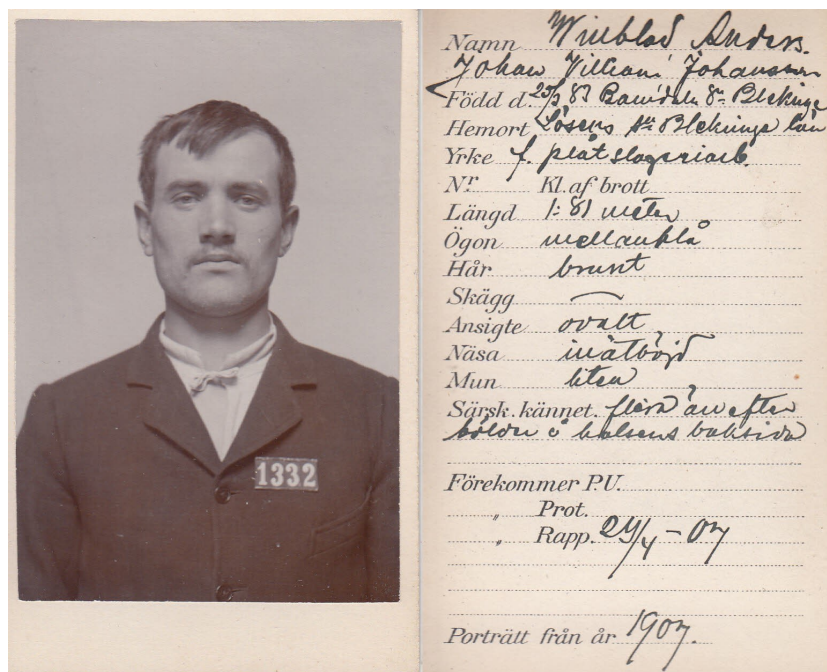 1332
Namn Winblad Anders.
Johan Villiam Johansson
Född d. 25/3 83 Blekinge
Hemort Lösens Blekinge län
Yrke f. plåtslageriarb.
Nr Kl. af brott
Längd 1:81 meter
Ögon mellanblå
Hår brunt
Skägg —
Ansigte ovalt
Näsa inåtböjd
Mun liten
Särsk. kännet. flera ärr efter
bölder å halsens baksida
Förekommer P.U.
„ Prot.
„ Rapp. 24/4 - 07
Porträtt från år 1907.